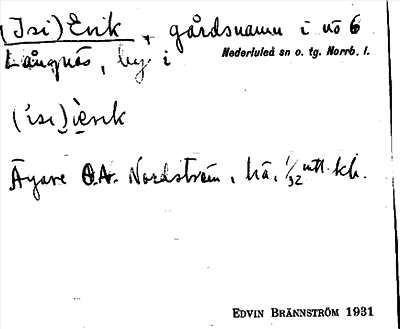 (Isi) Erik, gårdsnamn i nö 6
Långnäs, by i Nederluleå sn o. tg. Norrb. l.
(ısı) ìerık
Ägare O.A. Nordström, hä, 1/32 mtl. kh.
EDVIN BRÄNNSTRÖM 1931